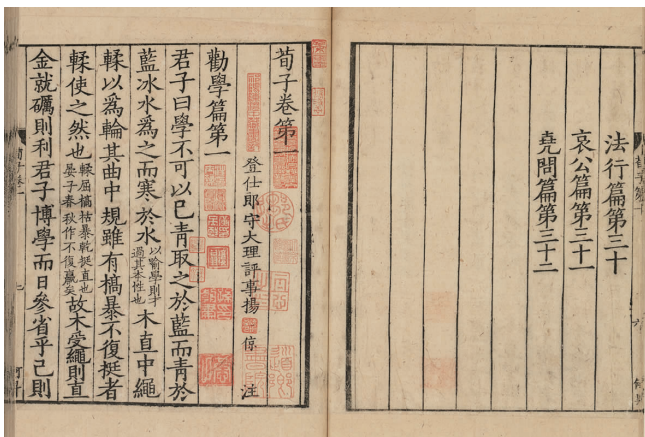 法行篇第三十
哀公篇第三十一
堯問篇第三十二
荀子卷第一
登仕郎守大理評事楊 倞 注
勸學篇第一
君子曰學不可以已青取之於藍而青於
藍冰水爲之而寒於水以喻學則才過其本性也木直中繩
輮以爲輪其曲中規雖有槁暴不復挺者
輮使之然也輮屈槁枯暴乾挺直也晏子春秋作不復贏矣故木受繩則直
金就礪則利君子博學而日參省乎己則